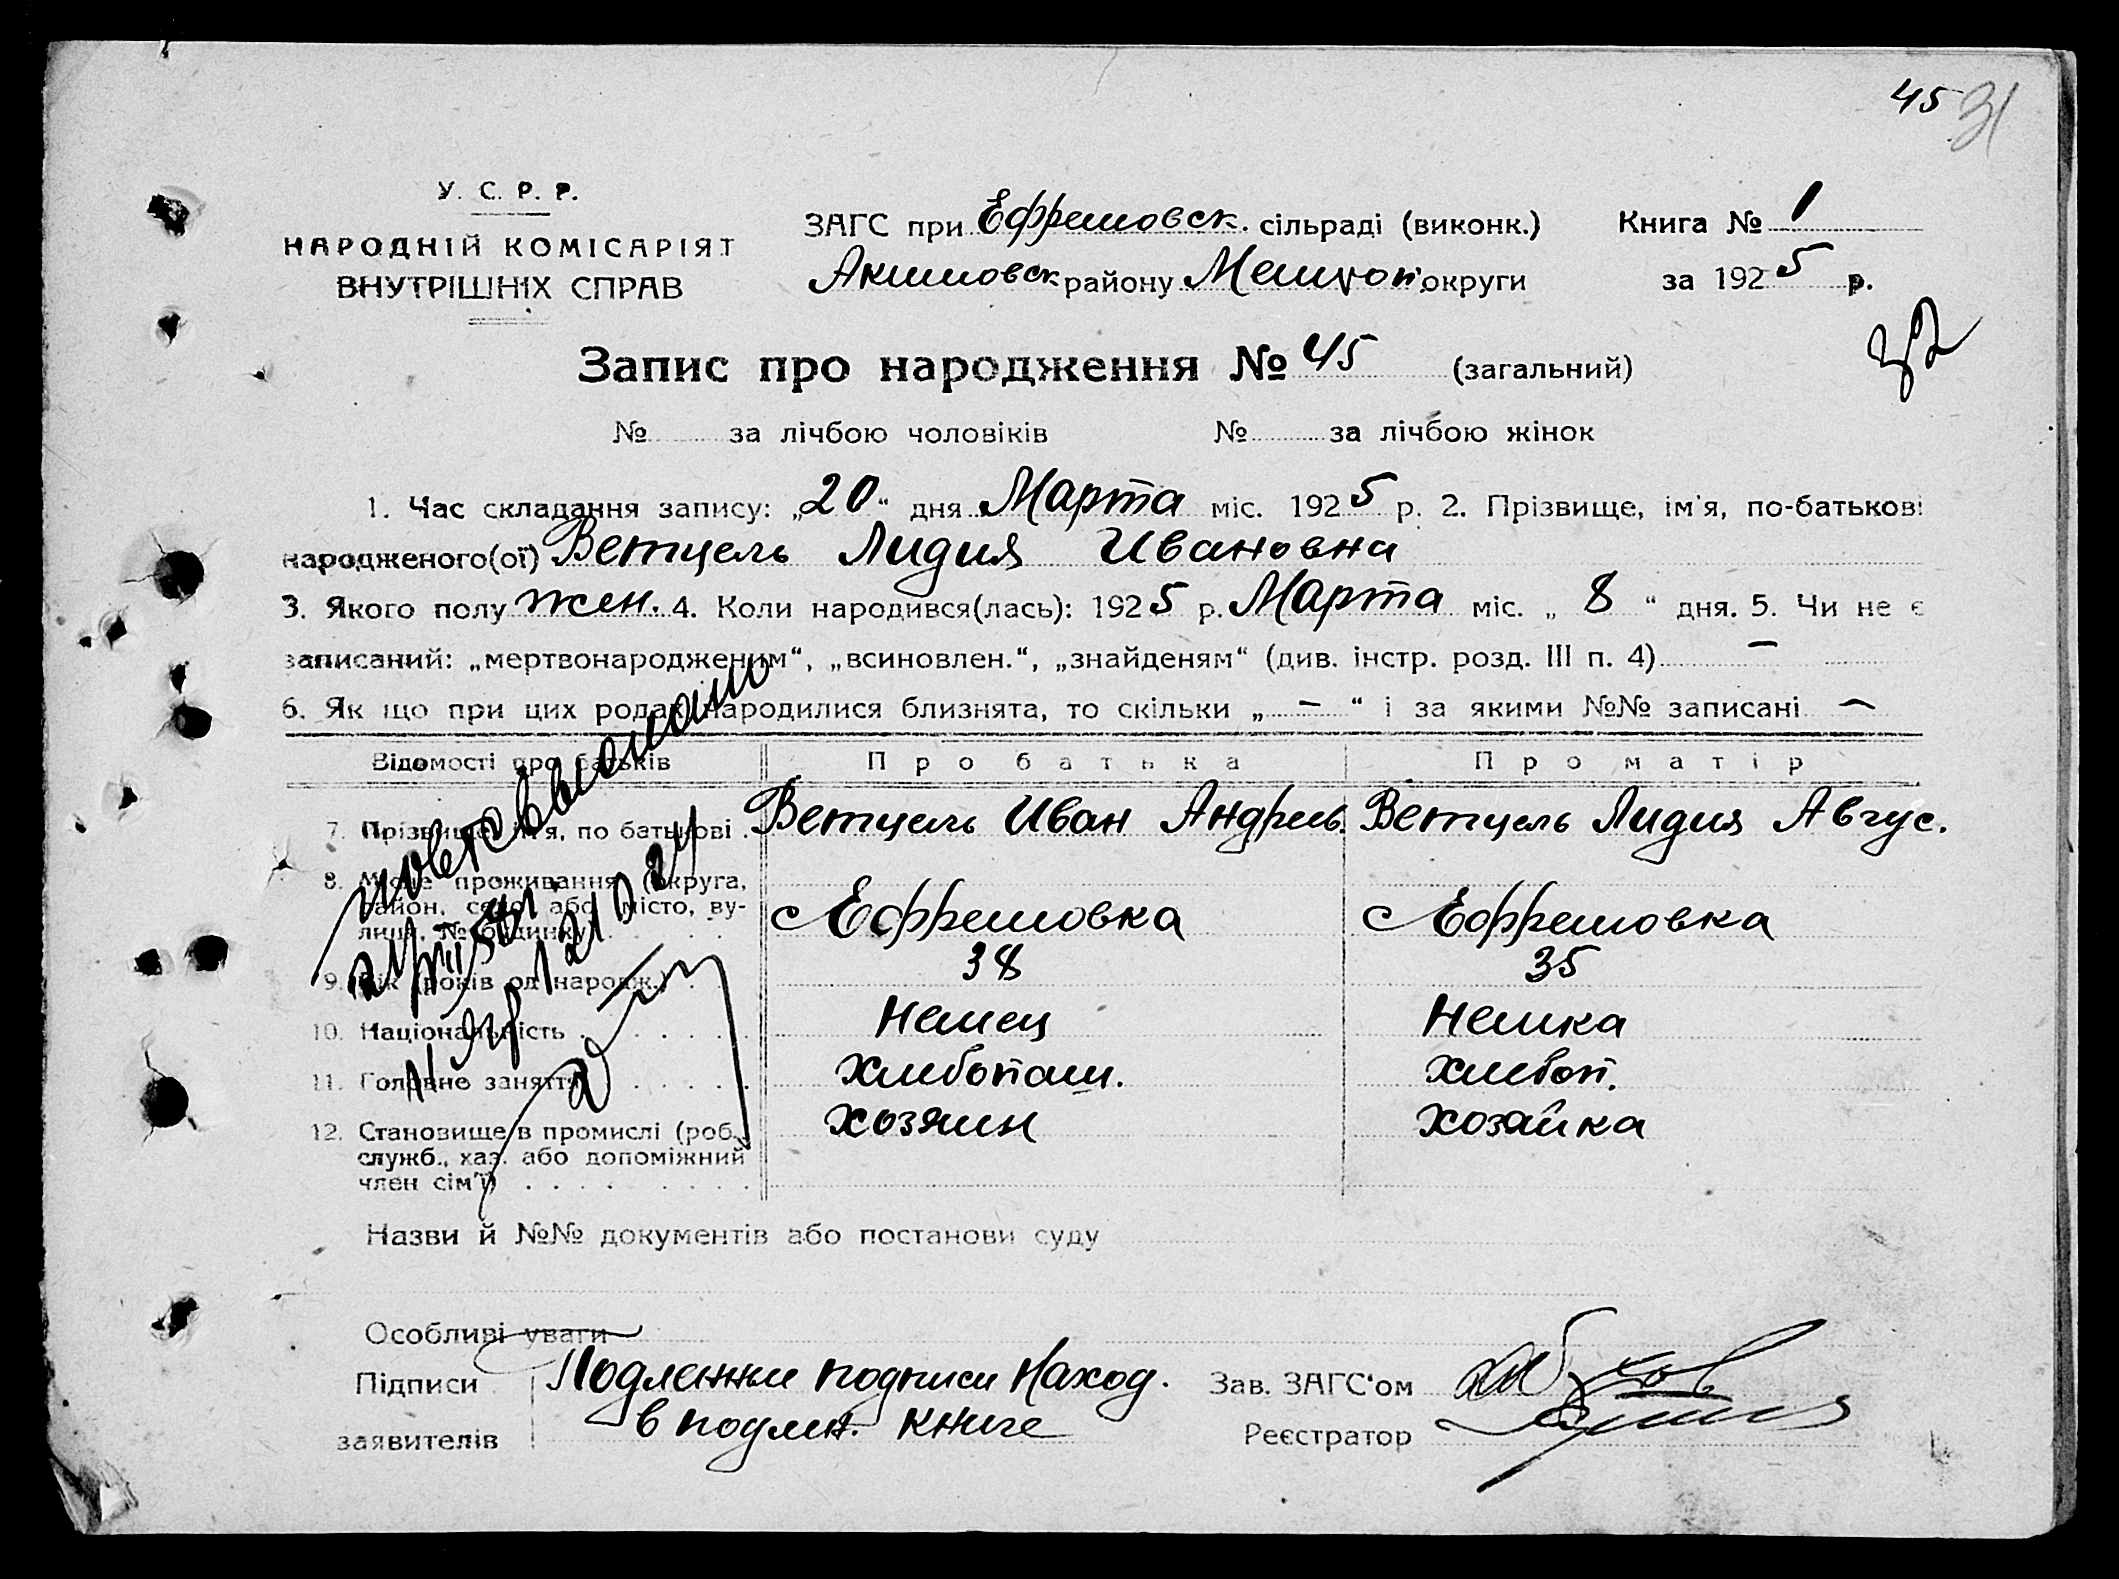 45 31
У. С. Р. Р.
НАРОДНІЙ КОМІСАРІЯТ
ВНУТРІШНІХ СПРАВ
ЗАГС при Ефремовск. сільраді (виконк.)
Акимовск району Мелитоп. округи
Книга № 1
за 1925 р.
32
Запис про народження № 45 (загальний)
№ за лічбою чоловіків № за лічбою жінок
1. Час складання запису: „20“ дня Марта міс. 1925 р. 2. Прізвище, ім'я, по-батькові
народженого(ої) Ветцель Лидия Ивановна
3. Якого полу жен. 4. Коли народився(лась): 1925 р. Марта міс. „8“ дня. 5. Чи не є
записаний: „мертвонародженим“, „всиновлен.“, „знайденям“ (див. інстр. розд. III п. 4) —
6. Як що при цих родах народилися близнята, то скільки „—“ і за якими №№ записані —
Відомості про батьків Про батька Про матір
7. Прізвище, ім'я, по батькові . Ветцель Иван Андреев. Ветцель Лидия Авгус.
8. Місце проживання (округа,
район, село або місто, ву-
лиця, № будинку) Ефремовка Ефремовка
9. Вік (років од народж.) . . 38 35
10. Національність . . . . . Немец Немка
11. Головне заняття . . . . . Хлибопаш. Хлибоп.
12. Становище в промислі (роб.,
служб., хаз. або допоміжний
член сім'ї) . . . . . . . . хозяин хозайка
повт. выслано
Назви й №№ документів або постанови суду
Особливі уваги
Підписи Подленни подписи наход.
заявителів в подлин. книге
Зав. ЗАГС'ом
Реєстратор